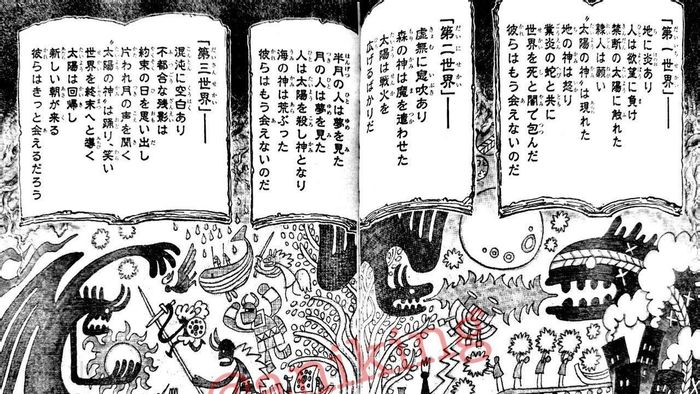 「第一世界」―
地に炎あり
人は欲望に負け
禁断の太陽に触れた
隷人は願い
“太陽の神”は現れた
地の神は怒り
業炎の蛇と共に
世界を死と闇で包んだ
彼らはもう会えないのだ
「第二世界」―
虚無に息吹あり
森の神は魔を遣わせた
太陽は戦火を
広げるばかりだ
半月の人は夢を見た
月の人は夢を見た
人は太陽を殺し神となり
海の神は荒ぶった
彼らはもう会えないのだ
「第三世界」―
混沌に空白あり
不都合な残影は
約束の日を思い出し
片われ月の声を聞く
“太陽の神”は踊り、笑い
世界を終末へと導く
太陽は回帰し
新しい朝が来る
彼らはきっと会えるだろう